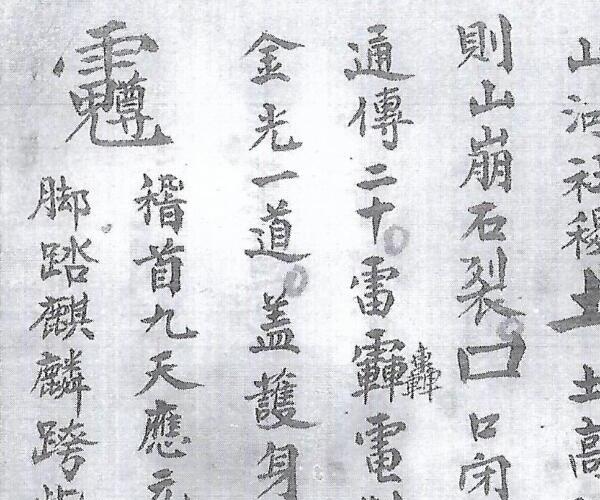 山河社稷土土高
則山崩石裂口口閉
通傳二十雷轟轟電
金光一道蓋護身
稽首九天應元
脚踏麒麟跨